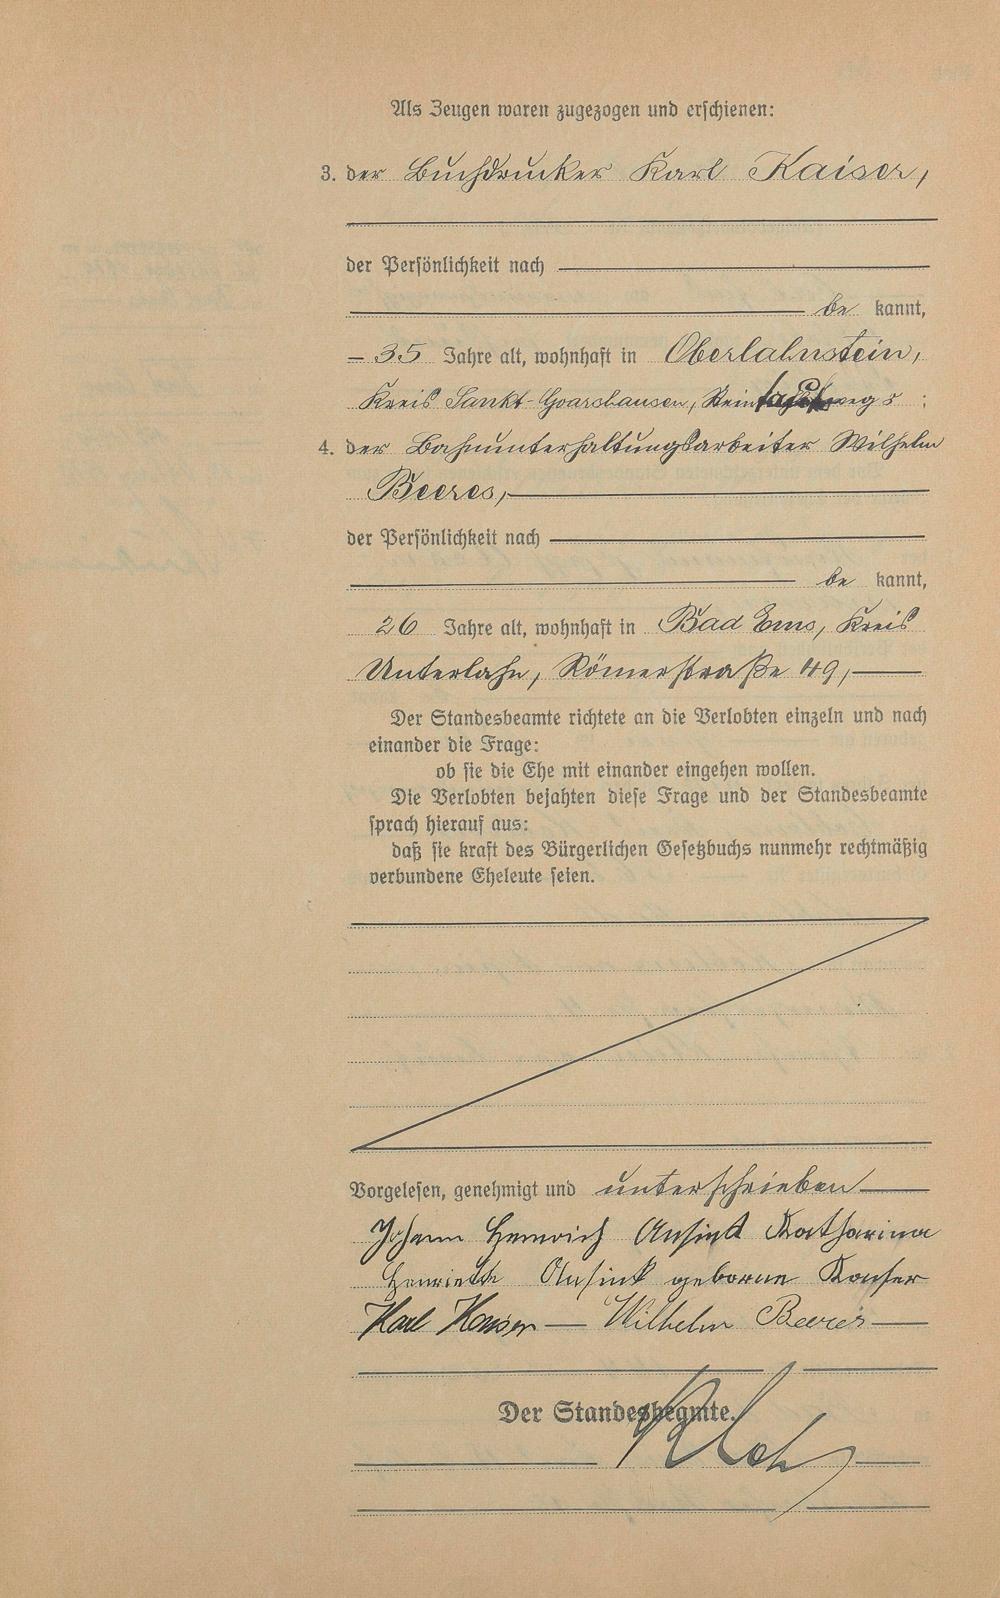 Als Zeugen waren zugezogen und erschienen:
3. der Buchdrucker Karl Kaiser,
der Persönlichkeit nach
be kannt,
35 Jahre alt, wohnhaft in Oberlahnstein,
Kreis Sankt-Goarshausen, :
4. der Bahnunterhaltungsarbeiter Wilhelm
Beeres,
der Persönlichkeit nach
be kannt,
26 Jahre alt, wohnhaft in Bad Ems, Kreis
Unterlahn, Römerstraße 49,
Der Standesbeamte richtete an die Verlobten einzeln und nach
einander die Frage:
ob sie die Ehe mit einander eingehen wollen.
Die Verlobten bejahten diese Frage und der Standesbeamte
sprach hierauf aus:
daß sie kraft des Bürgerlichen Gesetzbuchs nunmehr rechtmäßig
verbundene Eheleute seien.
Vorgelesen, genehmigt und unterschrieben
Johann Heinrich Ansink Katharina
Henriette Ansink geborne
Karl Kaiser Wilhelm Beeres
Der Standesbeamte.